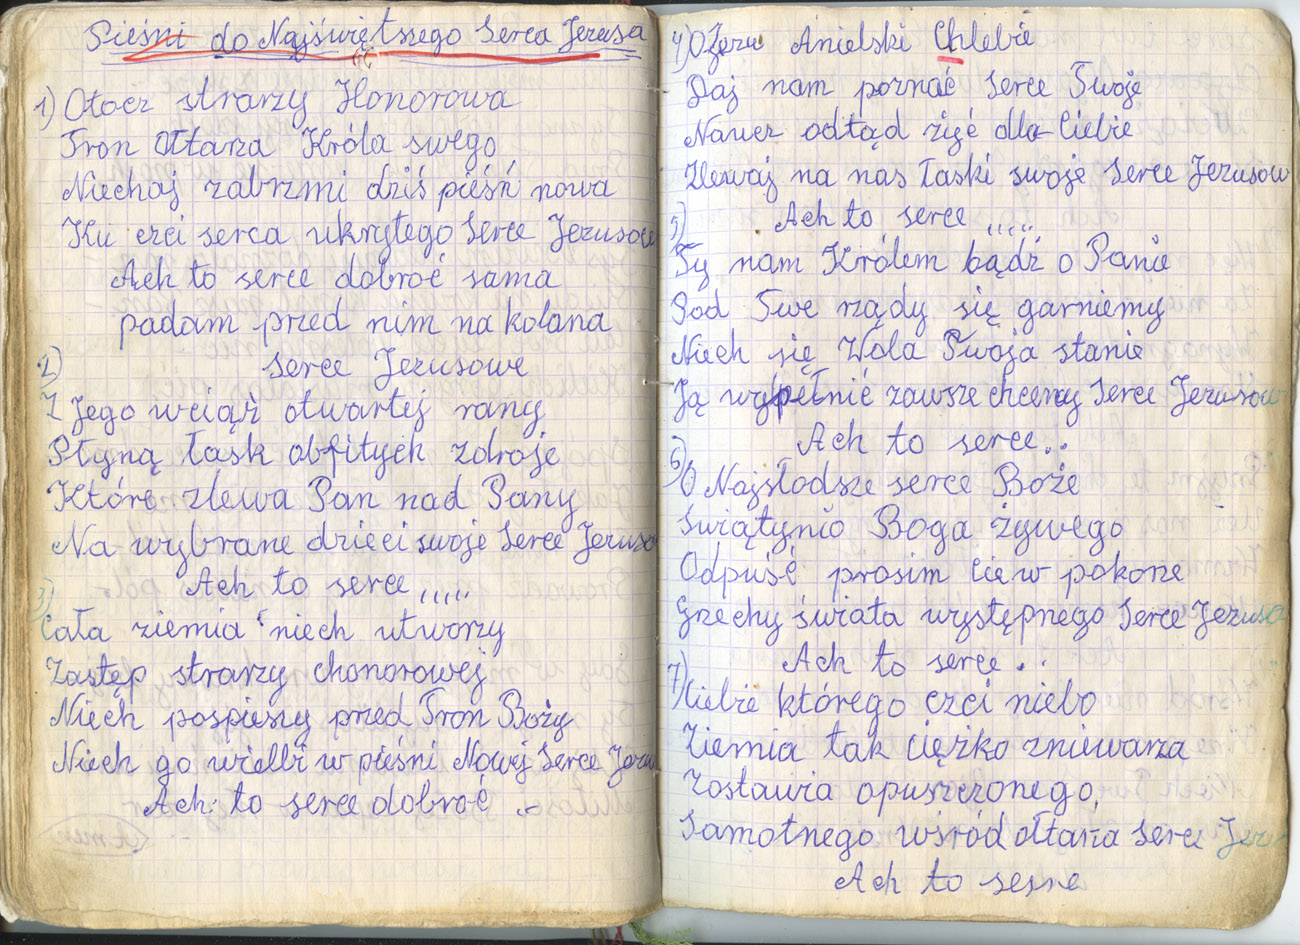 Pieśni do Najświętszego Serca Jezusa
1) Otocz strarzy Honorowa
Tron Ołtarza Króla swego
Niechaj zabrzmi dziś pieśń nowa
Ku czci serca ukrytego Serce Jezusowe
Ach to serce dobroć sama
padam przed nim na kolana
serce Jezusowe
2)
Z Jego wciąż otwartej rany
Płyną łask obfitych zdroje
Które zlewa Pan nad Pany
Na wybrane dzieci swoje Serce Jezuso
Ach to serce ,,,,,
3)
Cała ziemia niech utworzy
Zastęp strarzy chonorowej
Niech pospieszy przed Tron Boży
Niech go wielbi w pieśni Nowej Serce Jezu
Ach to serce dobroć
Amen
4) O Jezu Anielski Chlebie
Daj nam poznać Serce Twoje
Naucz odtąd żyć dla Ciebie
Zlewaj na nas łaski swoje Serce Jezusow
5) Ach to serce ,,,,,
Ty nam Królem bądź o Panie
Pod Twe rządy się garniemy
Niech się Wola Twoja stanie
Ją wypełnić zawsze chcemy Serce Jezusow
Ach to serce..
6)
O Najsłodsze serce Boże
Świątynio Boga żywego
Odpuść prosim Cie w pokorze
Grzechy świata występnego Serce Jezusa
Ach to serce...
7)
Ciebie którego czci niebo
Ziemia tak ciężko zniewarza
Zostawia opuszczonego,
Samotnego wśród ołtarza Serce Jezu
Ach to serne